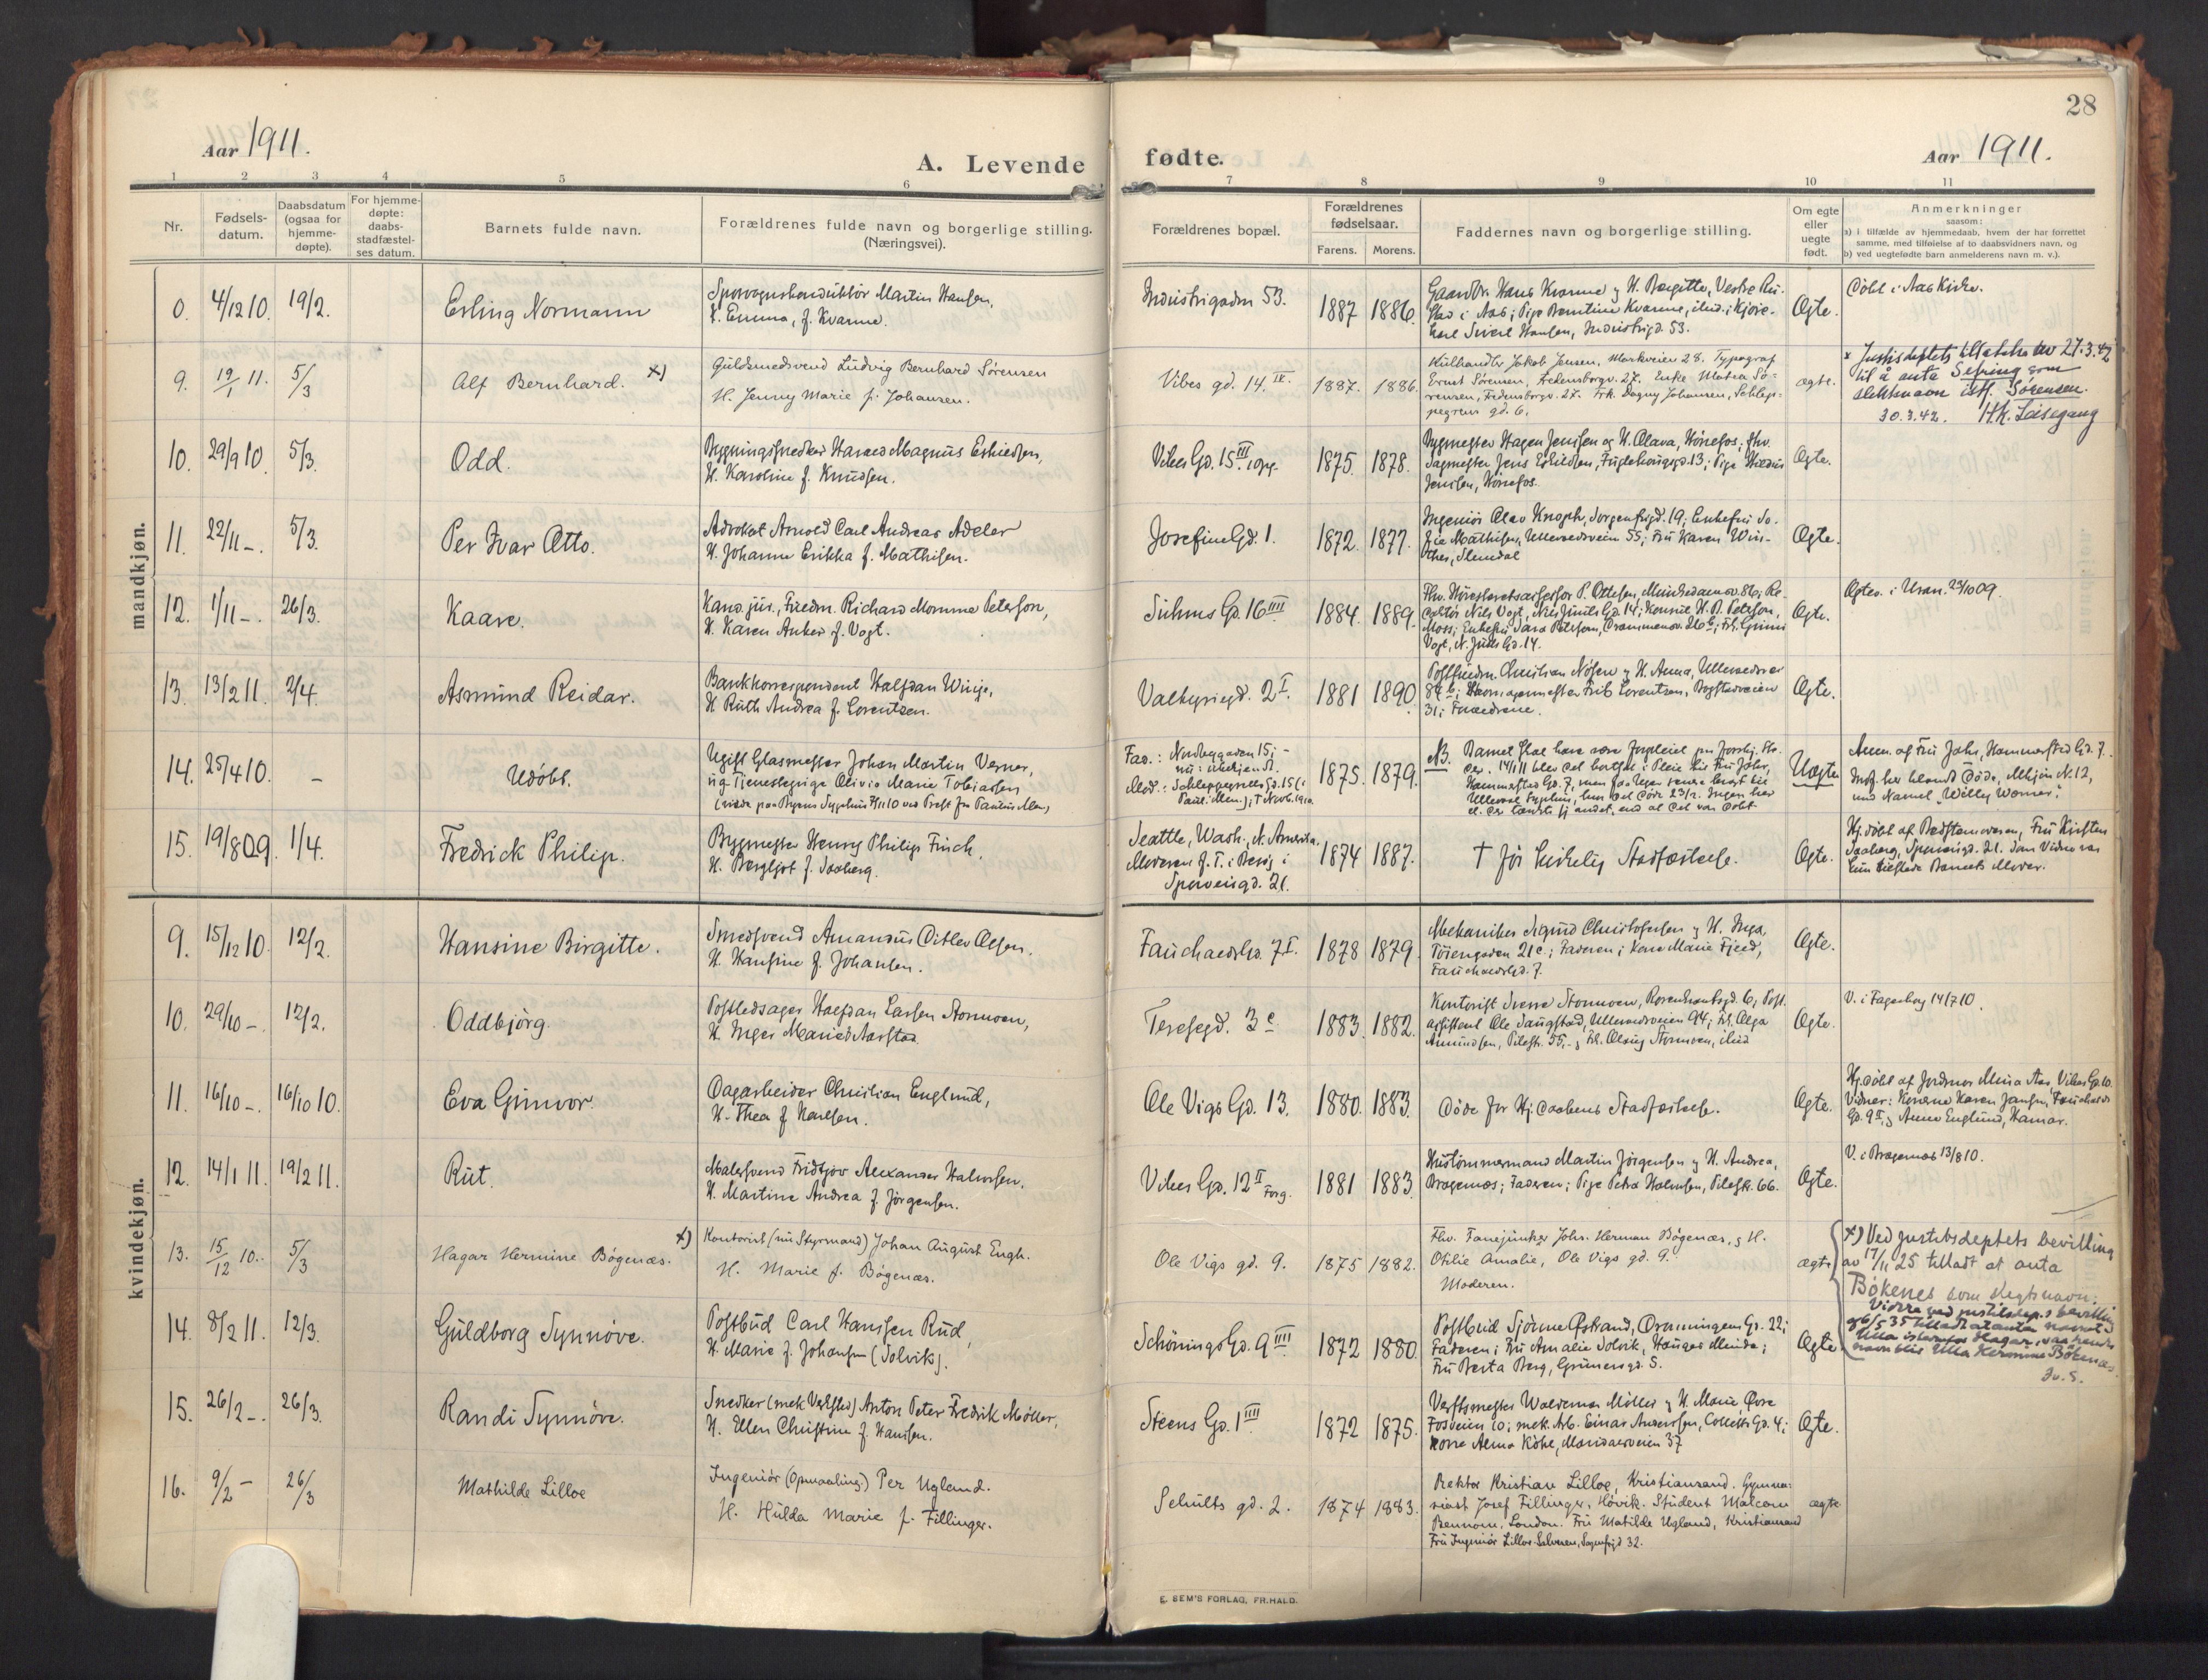 28
Aar 1911.
A. Levende fødte.
Aar 1911.
1 2 3 4 5 6 7 8 9 10 11
Nr.
Fødsels-
datum.
Daabsdatum
(ogsaa for
hjemme-
døpte).
For hjemme-
døpte:
daabs-
stadfæstel-
ses datum.
Barnets fulde navn.
Forældrenes fulde navn og borgerlige stilling.
(Næringsvei).
Forældrenes bopæl.
Forældrenes
fødselsaar.
Farens. Morens.
Faddernes navn og borgerlige stilling.
Om egte
eller
uegte
født.
Anmerkninger
saasom:
a) i tilfælde av hjemmedaab, hvem der har forrettet
samme, med tilføielse af to daabsvidners navn, og
b) ved uegtefødte barn anmelderens navn m. v.).
mandkjøn.
0. 4/12 10. 19/2. Erling Normann
Sporvognskonduktör Martin Hansen,
H. Emma, f. Kvarme.
Industrigaden 53. 1887 1886.
Gaardbr. Hans Kvarme og H. Birgitte, Vestre
Karl Sivert Hansen, Industrigd. 53.
Egte.
Döbt i Aas Kirke.
9. 19/1 11. 5/3 Alf Bernhard. x)
Guldsmedsvend Ludvig Bernhard Sörensen
H. Jenny Marie f. Johansen.
Vibes gd. 14 IV. 1887. 1886.
Kulhandler Jakob Jensen, Markveien 28. Typograf
Ernst Sörensen, Fredensborgv. 27. Enke Matea Sö-
rensen, Fredensborgv. 27. Frk. Dagny Johansen, Schlep-
pegrens gd. 6.
ægte.
x Justisdeptets tillatelse av 27.3.42
til å anta Sefring som
slektsnavn istf. Sörensen.
30.3.42. H.K. Laisegang
10. 29/9 10. 5/3. Odd.
Bygningssnedker Harald Magnus Eskildsen,
H. Karoline f. Knudsen.
Vibes Gd. 15 III opg. 1875. 1878.
Bygmester Hagen Jensen og H. Olava, Hönefos; fhv.
Sagmester Jens Eskildsen, Fuglehaugsgd. 13; Pige
Jensen, Hönefos.
Egte.
11. 22/11 -. 5/3. Per Ivar Otto.
Advokat Arnold Carl Andreas Adeler
H. Johanne Erikka f. Mathisen.
Josefine Gd. 1. 1872. 1877.
Ingeniör Olav Knoph, Sorgenfrigd. 19; Enkefru So-
fie Mathisen, Ullevaalsveien 55; Fru Karen Win-
ther, Slemdal
Egte.
12. 1/11 -. 26/3. Kaare.
Kand. jur., Fuldm. Richard Momme Peterson,
H. Karen Anker f. Vogt.
Suhms Gd. 16 IIII 1884. 1889.
Fhv. Höiesteretsassessor P. Ottesen, Munkedamsv. 86; Re-
daktör Nils Vogt, Niels Juels Gd. 14; Konsul H. B. Peterson,
Moss; Enkefru Sara Peterson, Drammensv. 26 b; Frk. Gunni
Vogt, N. Juels Gd. 14.
Egte.
Egtev. i Uran. 23/10 09.
13. 13/2 11. 2/4. Asmund Reidar.
Bankkorrespondent Halfdan Winge,
H. Ruth Andrea f. Lorentzen.
Valkyriegd. 2 I. 1881 1890.
Postfuldm. Christian Nösen og H. Anna, Ullevaalsvei
84 b; Lorentzen, Bogstadveien
31; Forældrene.
Egte.
14. 25/4 10. - Udöbt.
Ugift Glasmester Johan Martin Verner,
ug. Tjenestepige Olivia Marie Tobiassen
Fad.: Nordbygaden 15; -
nu: ubekjendt.
Mod.: Schleppegrells Gd. 15 (i
Paul. Men.), † Novb. 1910.
1875. 1879.
NB. Barnet skal have være
14/1 11 blev det bortsat i Pleie hos Fru Jahr,
Hammersted Gd. 7, men faa Uger senere bragt til
Ullevaal Sygehus, hvor det döde 23/2. Ingen her
Uegte
Anm. af Fru Jahr, Hammersted Gd. 7.
Indf. her blandt Döde, Mkjön N. 12,
med Navnet "Willy Werner".
15. 19/8 09. 1/4. Fredrick Philip.
Bygmester Henry Philip Finch,
H. Bergljot f. Saaberg.
Seattle, Wash., N. Amerika.
Moderen f. T. i Besög i
Sporveisgd. 21.
1874 1887.
† för kirkelig Stadfæstelse.
Egte.
Hj. döbt af Bedstemoderen, Fru Kirsten
Saaberg, Sporveisgd. 21. Som Vidne var
kun tilstede Barnets Moder.
kvindekjøn.
9. 15/12 10. 12/2. Hansine Birgitte.
Smedsvend Amandus Ditlev Olsen,
H. Hansine f. Johansen.
Fauchalds Gd. 7 I. 1878 1879.
Mekaniker Sigurd Christofersen og H. Inga,
Töiengaden 21 c.; Faderen; Kone Marie Fjeld,
Fauchalds Gd. 7.
Egte.
10. 29/10 -. 12/2. Oddbjörg.
Postledsager Halfdan Larsen Stormoen,
H. Inger Marie f. Aarstad
Teresegd. 3 c 1883. 1882.
Kontorist Sverre Stormoen, Rosenkrantzgd. 6; Post-
assistent Ole Saugstad, Ullevaalsveien 94; Frk. Olga
Amundsen, Pilestr. 55,- Stormoen, ibid
Egte.
V. i Fagerborg 14/7 10.
11. 16/10 -. 16/10 10. Eva Gunvor.
Dagarbeider Christian Englund,
H. Thea f. Karlsen.
Ole Vigs Gd. 13. 1880. 1883.
Döde för Hj. daabens Stadfæstelse.
Egte.
Hj. döbt af Jordmor Mina Aas, Vibes Gd. 10.
Vidner: Konerne Karen Jansen, Fauchalds
Gd. 9 I, og Anne Englund, Hamar.
12. 14/1 11. 19/2 11. Rut.
Malersvend Fridtjov Alexander Halvorsen,
H. Martine Andrea f. Jörgensen.
Vibes Gd. 12 II Forg. 1881 1883.
Hustömmermand Martin Jörgensen og H. Andrea,
Bragernæs; Faderen; Pige Petra Halvorsen, Pilestr. 66.
Egte.
V. i Bragernæs 13/8 10.
13. 15/12 10.. 5/3 Hagar Hermine Bögenæs. x)
Kontorist (nu Styrmand) Johan August Engh.
H. Marie f. Bögenæs.
Ole Vigs gd. 9. 1875 1882.
Fhv. Fanejunker Johs. Herman Bögenæs, og H.
Otilie Amalie, Ole Vigs gd. 9.
Moderen.
ægte
x) Ved justitsdeptets bevilling
av 17/11 25 tilladt at anta
Bökenes som slegtsnavn.
Videre ved justitsdep.s bevilling
af 6/5 35 tilladt at anta navnet
Ulla istedenfor Hagar, saa hendes
navn blir Ulla Hermine Bökenæs.
14. 8/2 11. 12/3. Guldborg Synnöve.
Postbud Carl Hansen Rud,
H. Marie f. Johansen (Solvik).
Schönings Gd. 9 IIII 1872 1880
Postbud Sjönne Östrand, Dronningens Gd. 22;
Faderen; Fru Amalie Solvik, Hauges Minde;
Fru Berta Berg, Grünersgd. 5.
Egte
15. 26/2 -. 26/3. Randi Synnöve.
Snedker (mek. Verksted) Anton Peter Fredrik Möller,
H. Ellen Christine f. Hansen.
Steens Gd. 1 IIII 1872 1875.
Verftsmester Waldemar Möller og H. Marie, Övre
Fosveien 10; mek. Arb. Einar Andersen, Colletts Gd. 4;
Alma Köhl, Maridalsveien 37
Egte.
16. 9/2 - 26/3 Mathilde Lilloe
Ingeniör (Opmaaling.) Per Ugland.
H. Hulda Marie f. Fillinger.
Schults gd. 2. 1874 1883.
Rektor Kristian Lilloe, Kristiansand. Gymna-
siast Josef Fillinger, Hövik. Student Malcom
Bennom, London. Fru Matilde Ugland, Kristiansand
Fru Ingeniör Lilloe-Salvesen, Sogenfrigd. 32.
ægte
E. SEM'S FORLAG, FR.HALD.